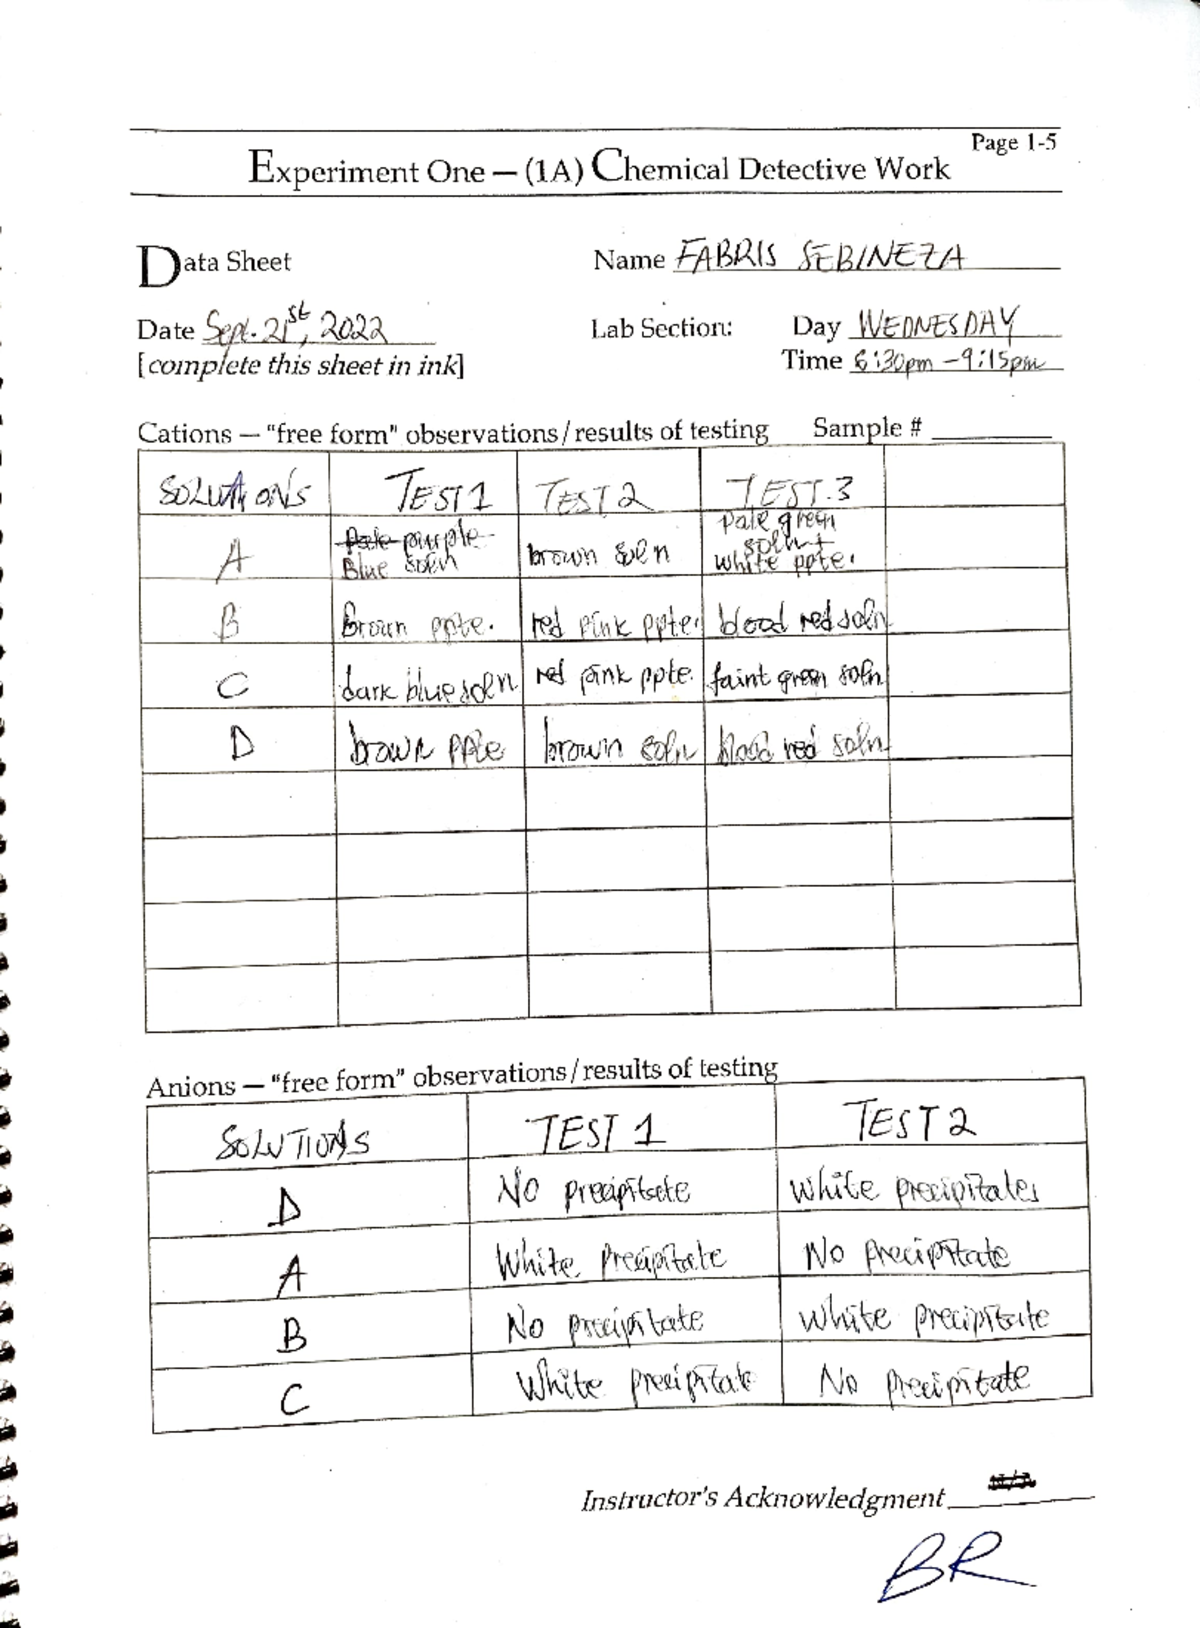 Page 1-5
Experiment One — (1A) Chemical Detective Work
Data Sheet
Name FABRIS SEBINEZA
Date Sept. 21st, 2022
Lab Section: Day WEDNESDAY
[complete this sheet in ink]
Time 6:30pm - 9:15pm
Cations — "free form" observations/results of testing Sample #
SOLUTIONS TEST 1 TEST 2 TEST.3
A Pale purple Blue soln brown soln pale green soln+ white ppte.
B Brown ppte. red pink ppte. blood red soln
C dark blue soln red pink ppte. faint green soln
D brown ppte brown soln blood red soln
Anions — "free form" observations/results of testing
SOLUTIONS TEST 1 TEST 2
D No precipitate White precipitates
A White Precipitate No Precipitate
B No precipitate White precipitate
C White precipitate No Precipitate
Instructor's Acknowledgment N/A
BR